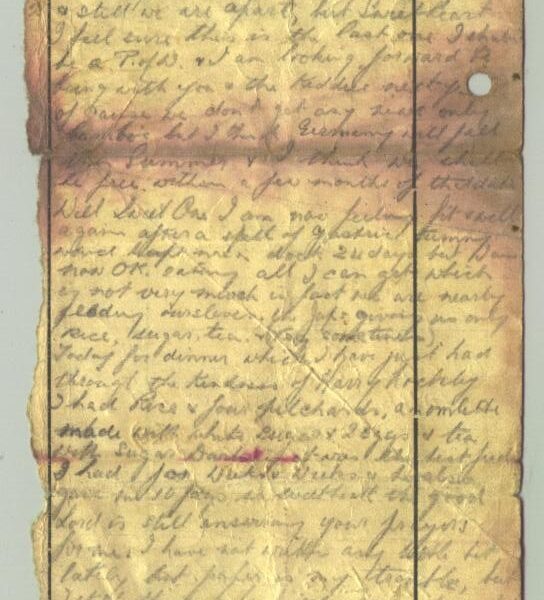 & still we are apart, but Sweetheart
I feel sure this is the last one I shall
be a P.of.W. & I am looking forward to
being with you & the Kiddies next year
of course we don't get any news only
but I think Germany will fall
this Summer & I think we shall
be free within a few months of that date
Well Sweet One I am now feeling fit & well
again after a spell of Gastric
24 days but I am
now OK. eating all I can get which
is not very much in fact we are nearly
feeding ourselves, the Japs giving us only
Rice, Sugar, tea. & (Soy sometimes)
Today for dinner which I have just had
through the Kindness of Harry
I had Rice & four pilchards, an omelette
made with white Sugar & 2 eggs & tea
with Sugar it was the best feed
I had for Weeks & Weeks & he also
gave me 10 fags so sweetheart the good
Lord is still answering your prayers
for me. I have not written any
lately, but paper is my trouble, but